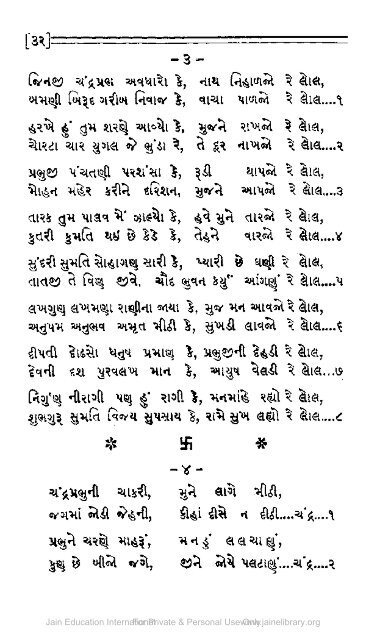 [૩૨]
- ૩ -
જિનજી ચંદ્રપ્રભ અવધારો કે, નાથ નિહાળજો રે લોલ,
બમણી બિરૂદ ગરીબ નિવાજ કે, વાચા પાળજો રે લોલ....૧
હરખે હું તુમ શરણે આવ્યો કે, મુજને રાખજો રે લોલ,
ચોરટા ચાર યુગલ જે ભુંડા રે, તે દૂર નાખજો રે લોલ....૨
પ્રભુજી પંચતણી પરશંસા કે, રૂડી થાપજો રે લોલ,
મોહન મહેર કરીને દરિશન, મુજને આપજો રે લોલ....૩
તારક તુમ પાલવ મેં ઝાલ્યો કે, હવે મુને તારજો રે લોલ,
કુતરી કુમતિ થઇ છે કેડે કે, તેહને વારજો રે લોલ....૪
સુંદરી સુમતિ સોહાગણ સારી કે, પ્યારી છે ઘણી રે લોલ,
તાતજી તે વિણુ જીવે, ચૌદ ભુવન કર્યું આંગણું રે લોલ....૫
લખગુણ લખમણા રાણીના જાયા કે, મુજ મન આવજો રે લોલ,
અનુપમ અનુભવ અમૃત મીઠી કે, સુખડી લાવજો રે લોલ....૬
દીપતી દોઢસો ધનુષ પ્રમાણ કે, પ્રભુજીની દેહડી રે લોલ,
દેવની દશ પુરવલખ માન કે, આયુષ વેલડી રે લોલ...૭
નિર્ગુણ નીરાગી પણ હું રાગી કે, મનમાંહે રહ્યો રે લોલ,
શુભગુરૂ સુમતિ વિજય સુપસાય કે, રામે સુખ લહ્યો રે લોલ....૮
* 卐 *
- ૪ -
ચંદ્રપ્રભુની ચાકરી, મુને લાગે મીઠી,
જગમાં જોડી જેહની, કીહાં દીસે ન દીઠી....ચંદ્ર....૧
પ્રભુને ચરણે માહરૂં, મનડું લલચાણું,
કુણ છે બીજો જગે, જીને જોયે પલટાણું....ચંદ્ર....૨
Jain Education International For Private & Personal Use Only www.jainelibrary.org